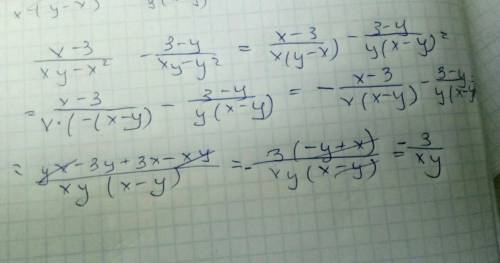 x·(y-x) y(x-y)
x-3/xy-x² - 3-y/xy-y² = x-3/x(y-x) - 3-y/y(x-y) =
= x-3/x·(-(x-y) - 3-y/y(x-y) = - x-3/x(x-y) - 3-y/y(x-y)
= yx-3y+3x-xy/xy(x-y) = - 3(-y+x)/xy(x-y) = - 3/xy